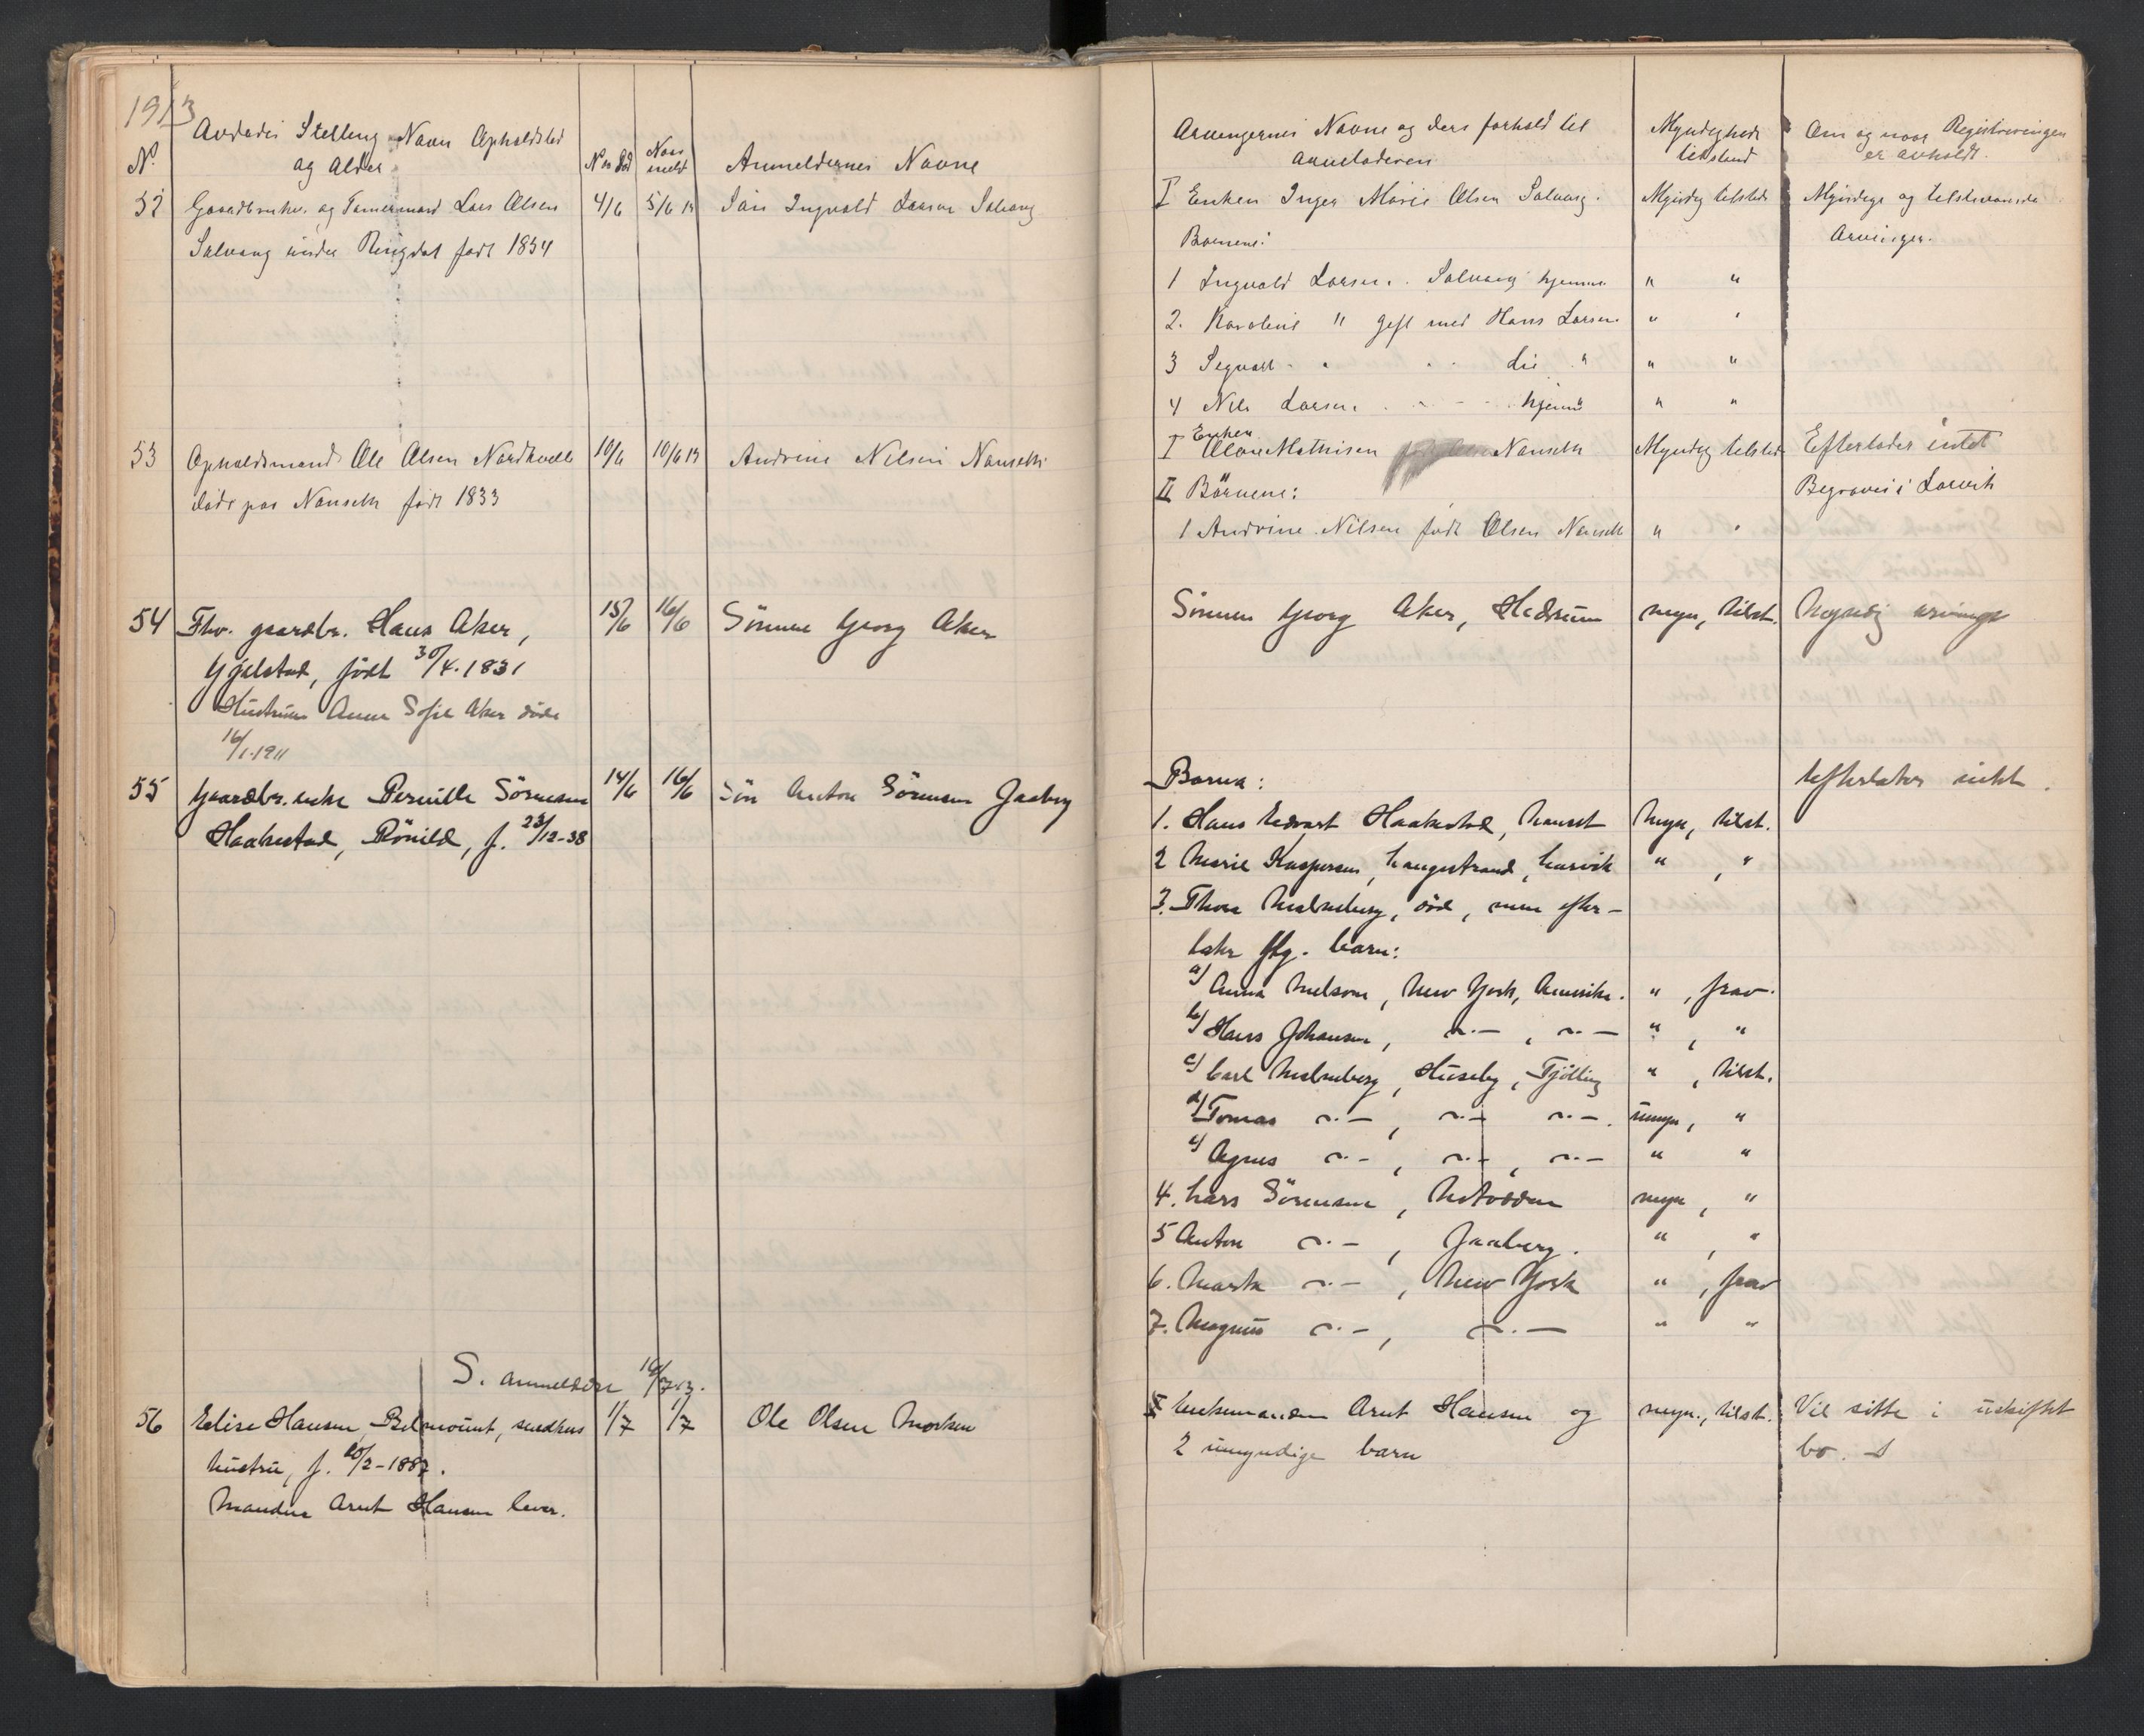 1913
No
Avdødes Stilling Navn Opholdsted
og Alder
Naar død
Naar meldt
Anmeldernes Navne
52 Gaardbruker og Tømermand Lars Olsen 4/6 5/6 13 Søn Ingvald Larsen Solvang
Solvang under Ringdal født 1834
53 Opholdsmand Ole Olsen Nordkvelle 10/6 10/6 13 Andrine Nilsen Nanseth
døde paa Nanseth født 1833
54 Fhv. gaardbr. Hans Aker, 15/6 16/6 Sönnen Georg Aker
Gjelstad, födt 30/4. 1831
Hustruen Anne Sofie Aker døde
16/1. 1911
55 Gaardbr. enke Pernille Sörensen 14/6 16/6 Sön Anton Sörensen Jaaberg
Haakestad, Rönild, f. 23/12-38
S. anmeldelse 16/7 13.
56 Edise Hansen, Belmount, smedhus 1/7 1/7 Ole Olsen Morken
hustru, f. 20/2-1887.
Manden Arnt Hansen lever.
Arvingernes Navne og ders forhold til
arveladeren
Myndigheds
tilstand
Om og naar Registreringen
er avholdt.
I Enken Inger Marie Olsen Solvang. Myndig tilsted Myndige og tilsteværende
Børnene: Arvinger.
1 Ingvald Larsen. Solvang hjemme " "
2. Karoline " gift med Hans Larsen " "
3 Segvart " " " Lie " " "
4 Nils Larsen. - - - hjeme " "
I Enken Oline Mathisen Nanseth Myndig tilsted Efterlader intet
II Börnene: Begraves i Larvik
1 Andrine Nilsen født Olsen Nanseth " "
Sönnen Georg Aker, Hedrum myn, tilst. Myndig arvinge
Barna: Efterlater intet.
1. Hans Edvart Haakestad, Nanset Myn, tilst.
2 Marie Kaspersen, Langestrand, Larvik " , "
3. Thora Malmberg, död, men efter-
later flg. barn:
a) Anna Nelson, New York, Amerika. " , frav.
b) Hans Johansen, -"- , -"- " , "
c) Carl Malmberg, Huseby, Tjölling " , tilst.
d) Tomas -"-, -"- -"-. umyn, "
e) Agnes -"-, -"-, -"- " "
4. Lars Sörensen, Notodden myn, "
5 Anton -"-, Jaaberg. " , "
6. Marta -"-, New York " , frav
7. Magnus -"-, -"- " "
I Enkemanden Arnt Hansen og myn., tilst. Vil sitte i uskiftet
2 umyndige barn bo.